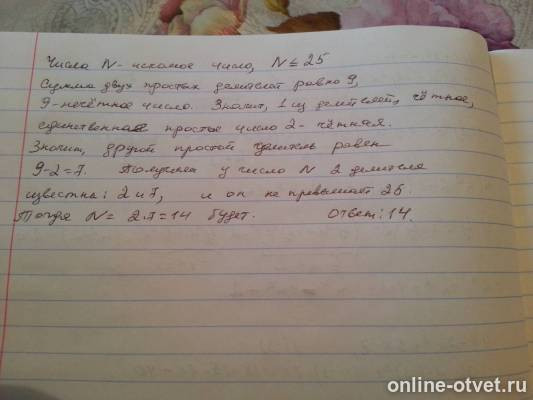 Числа N- искомое число, N ≤ 25
Сумма двух простых делителей равно 9,
9-нечётное число. Значит, 1 из делителей, чётное,
единственная простое число 2- чётная.
Значит, другой простой делитель равен
9-2=7. Получаем у число N 2 делителя
известна: 2 и 7, и он не превышает 25.
Тогда N= 2.7=14 будет. Ответ: 14.
online-otvet.ru